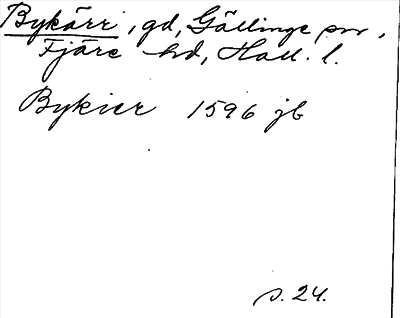 Bykärr, gd, Gällinge sn,
Fjäre hd, Hall. l.
Bykier 1596 jb
s. 24.